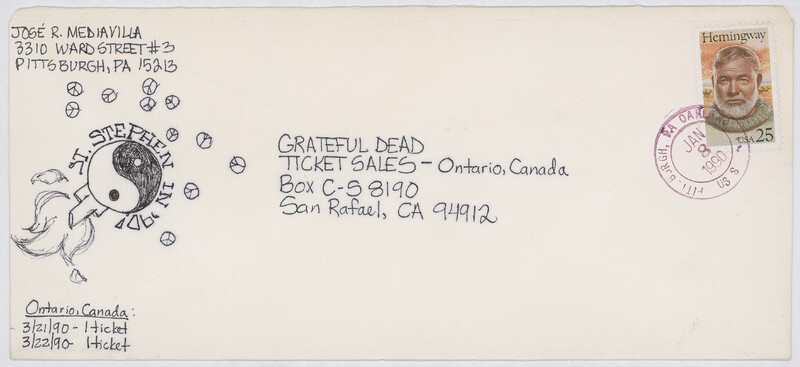 JOSÉ R. MEDIAVILLA
3310 WARD STREET #3
PITTSBURGH, PA 15213
ST. STEPHEN IN '90!
GRATEFUL DEAD
TICKET SALES - Ontario, Canada
Box C-S 8190
San Rafael, CA 94912
Ontario, Canada:
3/21/90 - 1 ticket
3/22/90 - 1 ticket
Hemingway
USA 25
PA
JAN
8
1990